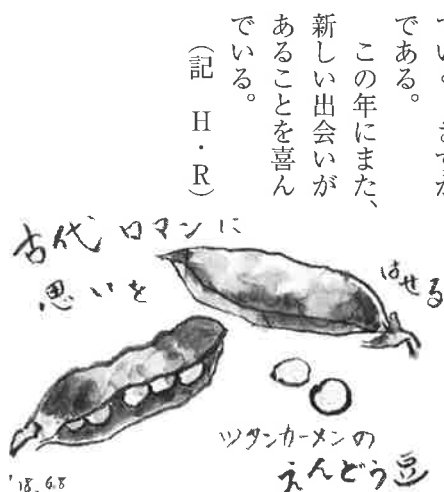 である。
この年にまた、
新しい出会いが
あることを喜ん
でいる。
（記　H・R）
古代ロマンに
思いを
はせる
ツタンカーメンの
えんどう豆
'18.6.8